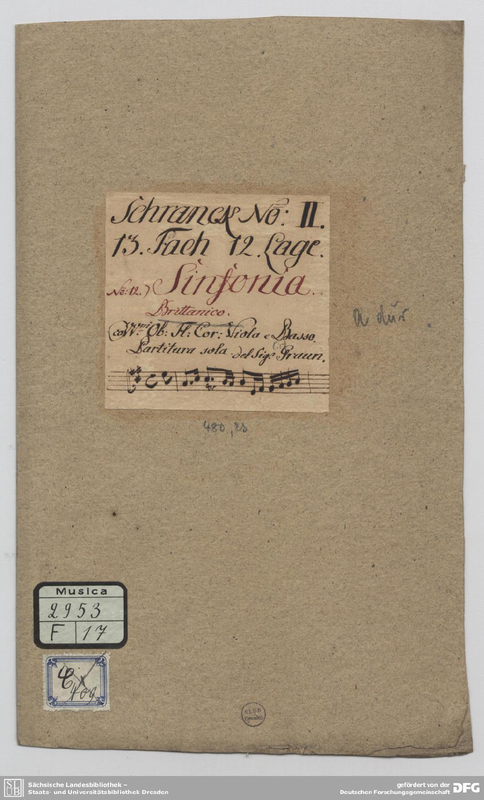 Schranck No: II.
13. Fach 12. Lage.
No: 12.) Sinfonia.
Brittanico.
co VVni Ob: Fl: Cor: Viola e Basso.
Partitura sola del Sigr Graun.
a dur
480,23
Musica
2953
F 17
409
SLUB
Sächsische Landesbibliothek –
Staats- und Universitätsbibliothek Dresden
gefördert von der
Deutschen Forschungsgemeinschaft DFG